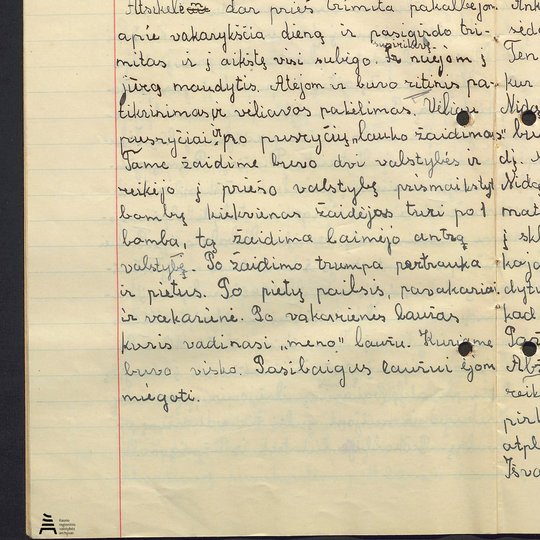 Atsikėlė dar prieš trimitą pakalbėjom
apie vakarykščia dieną ir pasigirdo tri-
mitas ir į aikštę visi subėgo. Ir nuėjom į
jūrą maudytis. Atėjom ir buvo rytinis pa-
tikrinimas ir vėliavos pakėlimas. Vėliau
pusryčiai ir po pusryčių „lauko žaidimas"
Tame žaidime buvo dvi valstybės ir
reikėjo į priešo valstybę prismaikštyt
bombų kiekvienas žaidėjas turi po 1
bomba, tą žaidima laimėjo antrą
valstybę. Po žaidimo trumpa pertrauka
ir pietus. Po pietų poilsis, pavakariai
ir vakarienė. Po vakarienės laužas
kuris vadinasi „meno" laužu. Kuriame
buvo visko. Pasibaigus laužui ėjom
miegoti.
Ten
kur
Nida
bu
dį.
Nida
mat
į skl
kad
reik
pirk
atpl
Išva